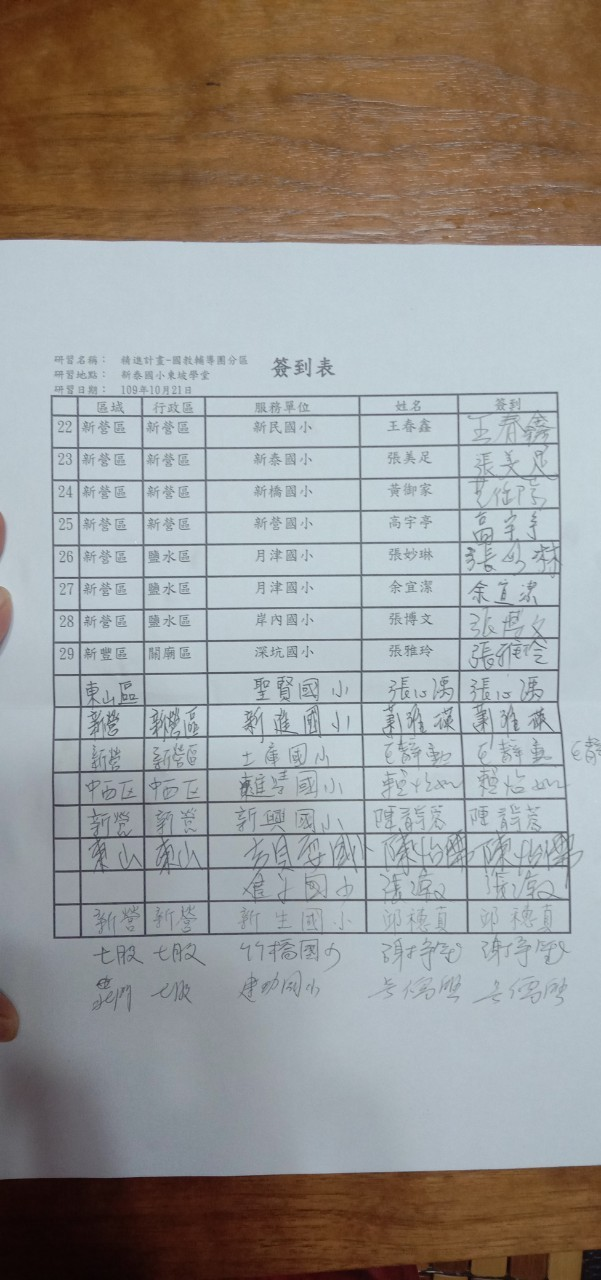 研習名稱： 精進計畫-國教輔導團分區 簽到表
研習地點： 新泰國小東坡學堂
研習日期： 109年10月21日
區域 行政區 服務單位 姓名 簽到
22 新營區 新營區 新民國小 王春鑫 王春鑫
23 新營區 新營區 新泰國小 張美足 張美足
24 新營區 新營區 新橋國小 黃御家
25 新營區 新營區 新營國小 高宇亭 高宇亭
26 新營區 鹽水區 月津國小 張妙琳 張妙琳
27 新營區 鹽水區 月津國小 余宜潔 余宜潔
28 新營區 鹽水區 岸內國小 張博文 張博文
29 新豐區 關廟區 深坑國小 張雅玲 張雅玲
東山區 聖賢國小 張心漓 張心漓
新營 新營區 新進國小 蕭雅瑛 蕭雅瑛
新營 新營區 土庫國小
中西区 中西区 國小
新營 新營 新興國小 陳韻蓉 陳韻蓉
東山 東山 陳怡 陳怡
國小
新營 新營 新生國小 邱穗真 邱穗真
七股 七股 竹橋國小 謝 謝
七股 建功國小